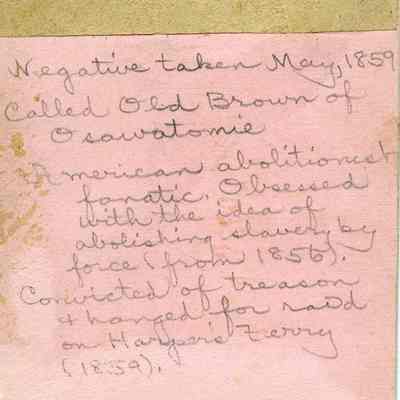 Negative taken May, 1859
Called Old Brown of
Osawatomie
American abolitionist
fanatic. Obsessed
with the idea of
abolishing slavery by
force (from 1856).
Convicted of treason
& hanged for raid
on Harper's Ferry
(1859).